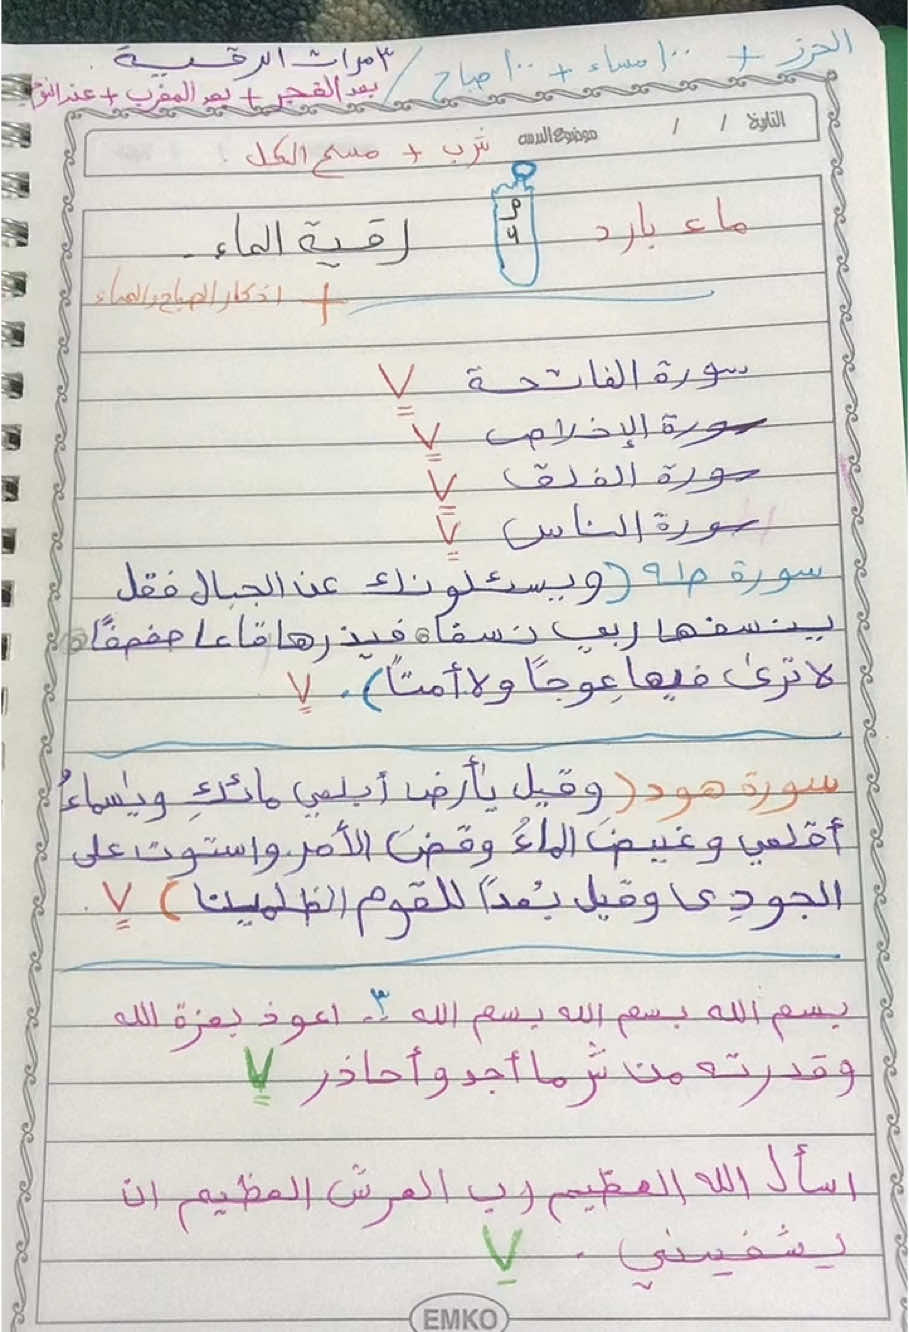 الحرز + ١٠٠ مساء + ١٠٠ صباح / ٣ مرات الرقية
بعد الفجر + بعد المغرب + عند النوم
التاريخ / / موضوع الدرس شرب + مسح الكل
ماء بارد ماء رقية الماء.
+ اذكار الصباح والمساء
سورة الفاتحة ٧
سورة الإخلاص ٧
سورة الفلق ٧
سورة الناس ٧
سورة طه (ويسئلونك عن الجبال فقل
ينسفها ربي نسفاً فيذرها قاعا صفصفاً
لا ترىٰ فيها عِوجاً ولا أمتاً). ٧
سورة هود (وقيل يٰأرض أبلعي مائكِ ويٰسماءُ
أقلعي وغيضَ الماءُ وقضيَ الأمر واستوت على
الجودي وقيل بُعداً للقوم الظٰلمين) ٧
بسم الله بسم الله بسم الله ٣ اعوذ بعزة الله
وقدرته من شر ما أجد وأحاذر ٧
اسأل الله العظيم رب العرش العظيم ان
يشفيني. ٧
EMKO